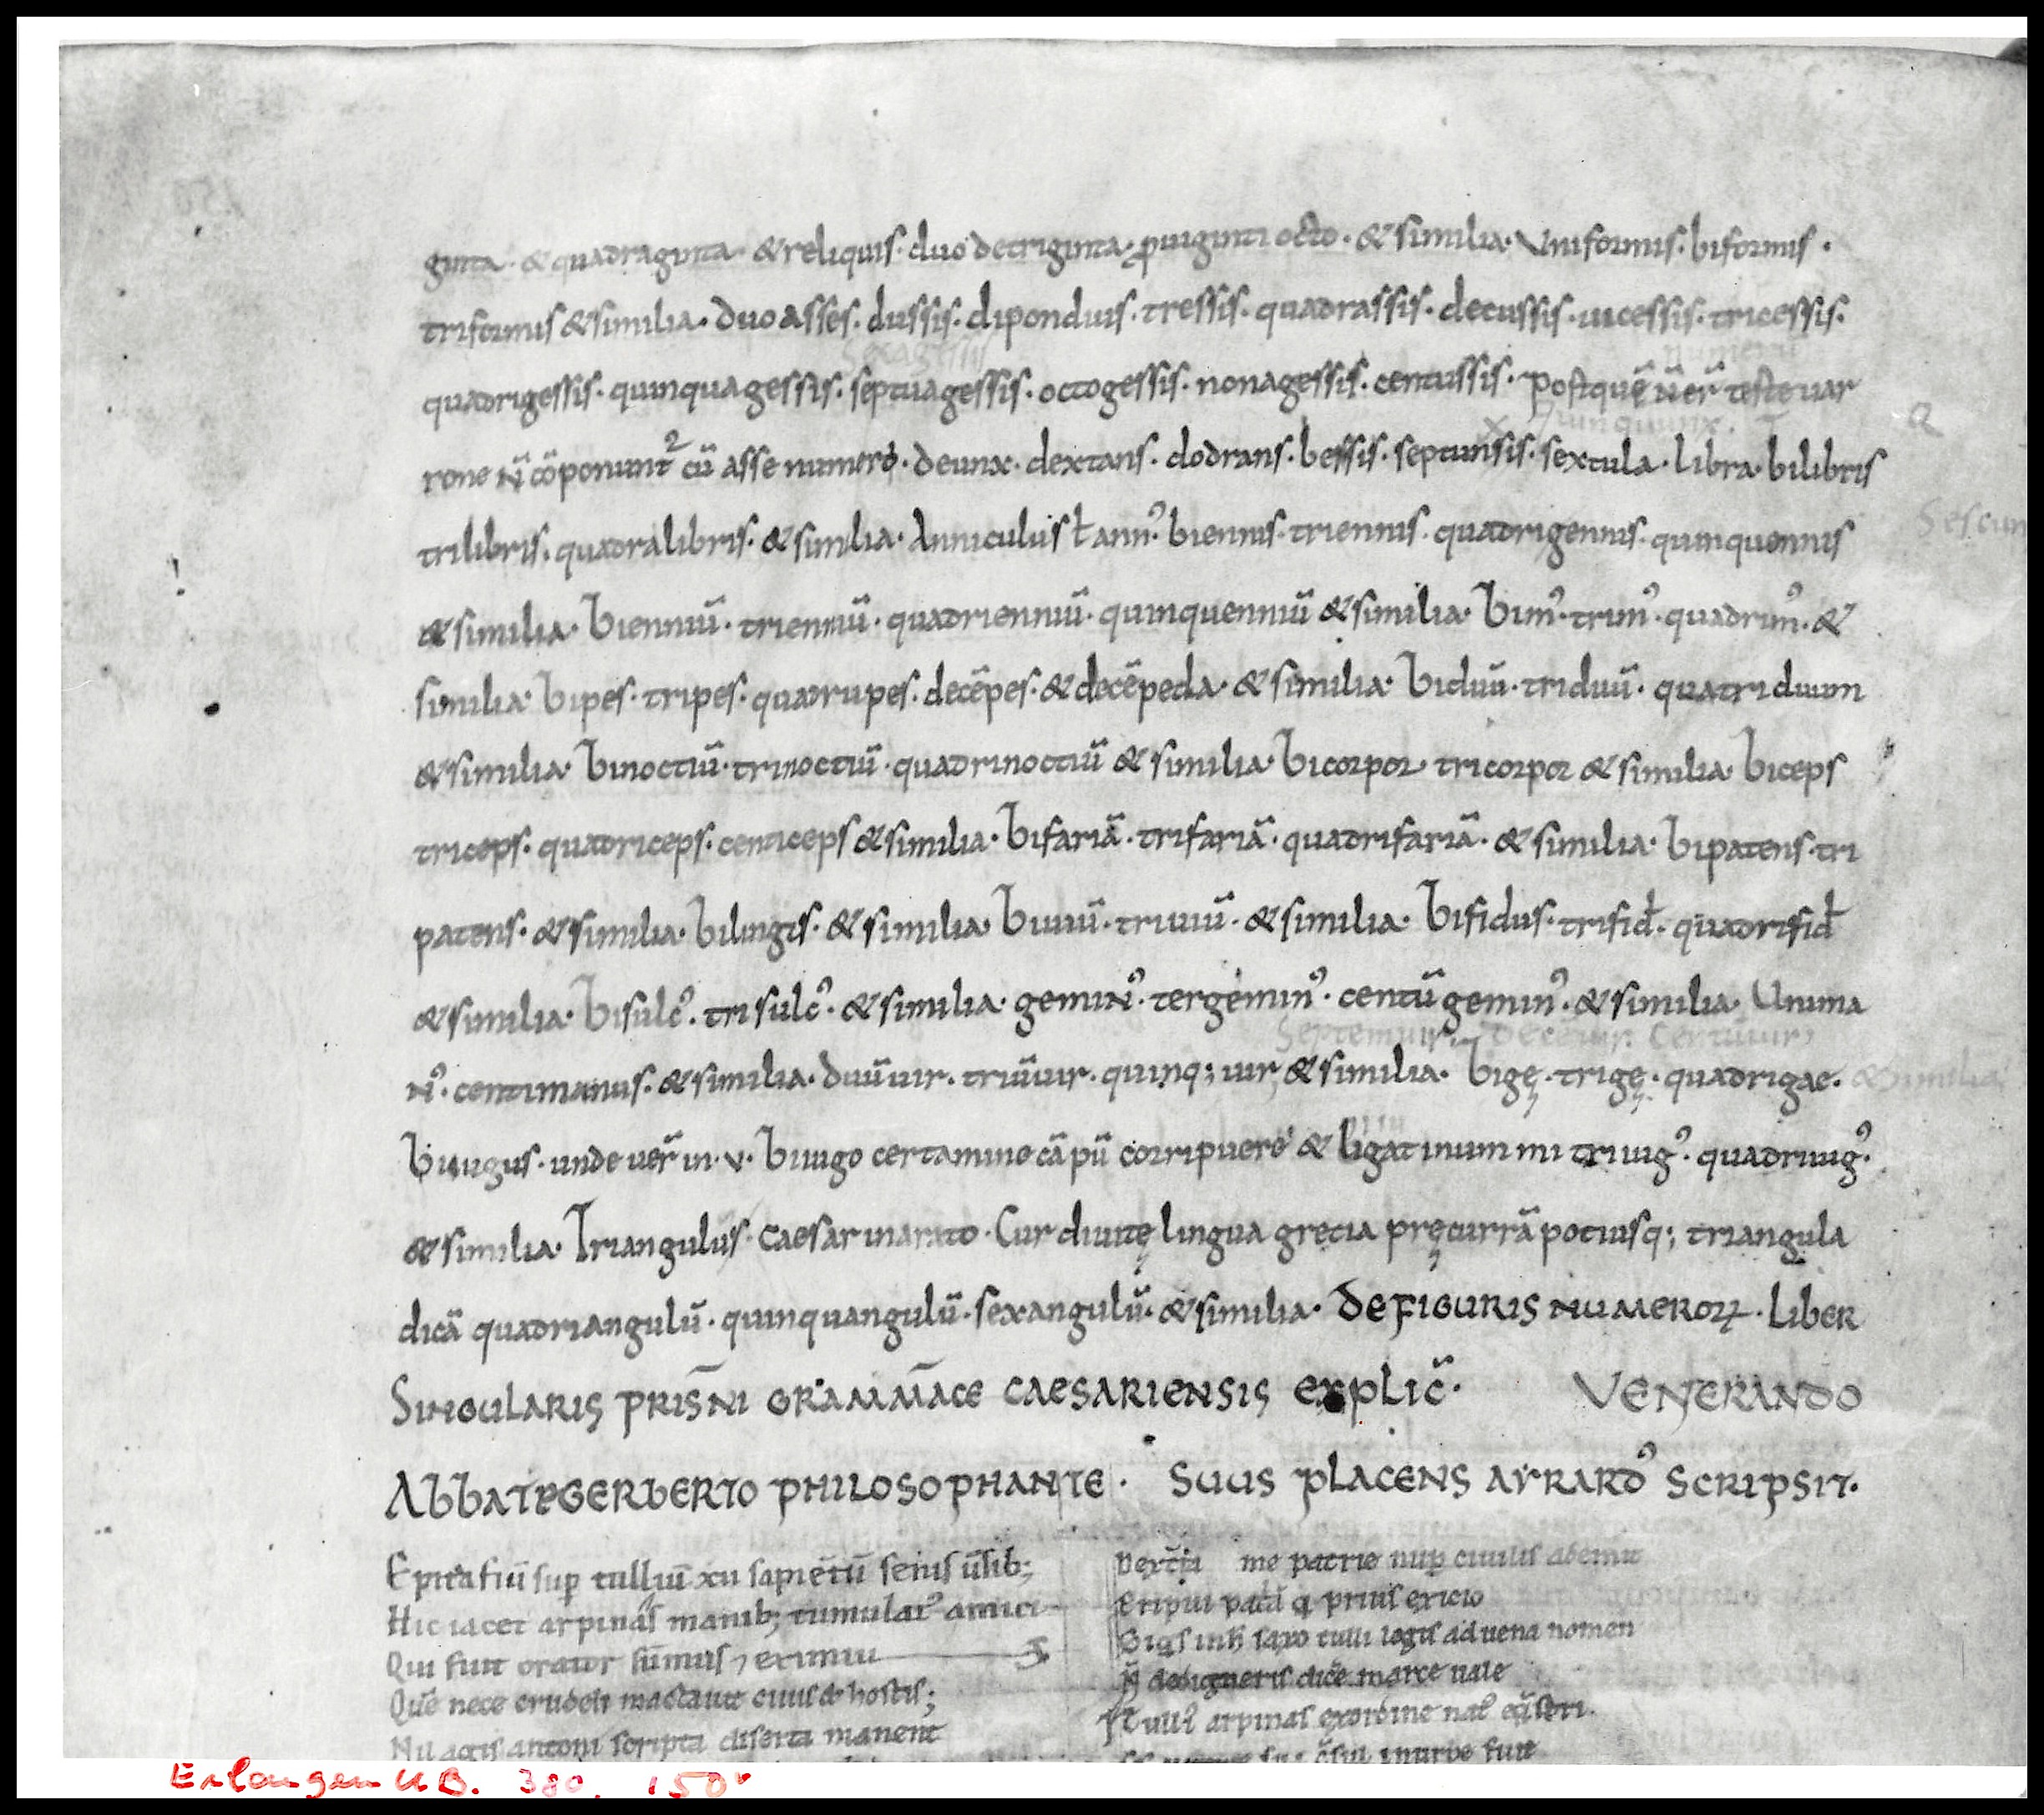 ginta · & quadraginta · & reliquis · duo detriginta · ꝓ uiginti octo · & similia · Uniformis · biformis ·
triformis & similia · duo asses · dussis · dipondius · tressis · quadrassis · decussis · uicessis · tricessis ·
sexagessis
quadrigessis · quinquagessis · septuagessis · octogessis · nonagessis · centussis · postquē teste uar
quincunx ·
rone n̄ cōponunt² cū asse numero · deunx · dextans · dodrans · bessis · septunsis · sextula · libra · bilibris
trilibris · quadralibris · & similia · Anniculus ł annꝰ · biennis · triennis · quadrigennis · quinquennis
Sescun
& similia · bienniū · trienniū · quadrienniū · quinquenniū & similia · bimꝰ · trimꝰ · quadrimꝰ · &
similia · bipes · tripes · quadrupes · decēpes · & decēpeda · & similia · biduū · triduū · quatriduum
& similia · binoctiū · trinoctiū · quadrinoctiū & similia · bicorpor · tricorpor & similia · biceps
triceps · quadriceps · centiceps & similia · bifariā · trifariā · quadrifariā · & similia · bipatens · tri
patens · & similia · bilinguis · & similia · biuiū · triuiū · & similia · bifidus · trifid̄ · quadrifid̄
& similia · bisulcꝰ · trisulcꝰ · & similia · geminꝰ · tergeminꝰ · centū geminꝰ · & similia · Unima
Septemuir · Decēuir · Centūuir
nꝰ · centimanus · & similia · duūuir · triūuir · quinq; uir & similia · bigę · trigę · quadrigae · & similia
biiugus · unde uer̄ in · v · biiugo certamine cāpū corripuere & ligat inum mi triiugꝰ · quadriiugꝰ ·
& similia · Triangulus · Caesar inarato · Cur diuitę lingua grecia pręcurrā potiusq; triangula
dicā quadriangulū · quinquangulū · sexangulū · & similia · DE FIGURIS NUMEROꝜ · LIBER
SINGULARIS PRISN̄I GRAMMACE CAESARIENSIS EXPLIC̄ · VENERANDO
ABBATE GERBERTO PHILOSOPHANTE · SUUS PLACENS AYRARDꝰ SCRIPSIT ·
Epitafiū suꝑ tulliū xii sapiētū senis ūsib;
Hic iacet arpinas manib; tumulatꝰ amici
Qui fuit orator sūmus ⁊ eximiu
Quē nece crudeli mactauit ciuis & hostis ;
Nil agis antoni scripta diserta manent
me patrie nuꝑ ciuilis ademit
Eripui prius exicio
saxo tulli legis aduena nomen
dedigneris dicē marce uale
Tulli arpinas exordine natꝰ
in urbe fuit
Erlangen UB. 380, 150ᵛ